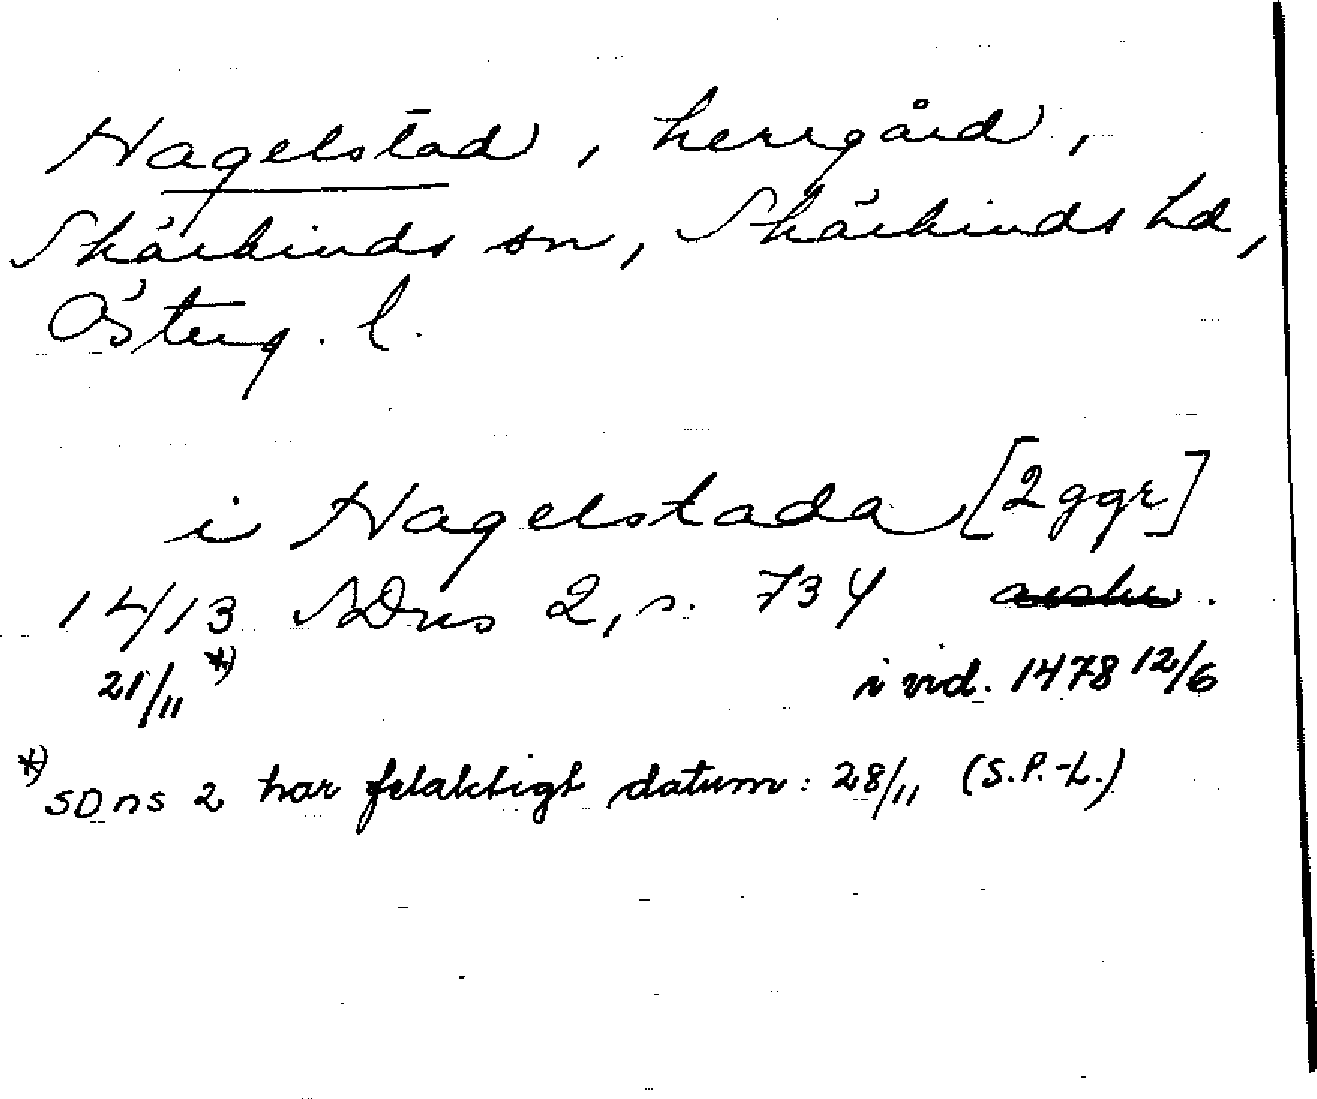 Hagelstad, herrgård,
Skärkinds sn, Skärkinds hd,
Österg. l.
i Hagelstada [2 ggr]
1413 SDns 2, s. 734
21/11 *) i vid. 1478 12/6
*) SDns 2 har felaktigt datum: 28/11 (S.P.-L.)